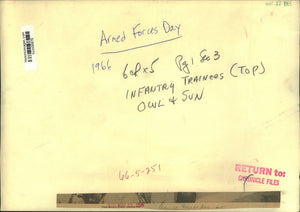 Armed Forces Day
1966 6 col x 5 Pg 1 Sec 3
INFANTRY TRAINEES (TOP)
OWL & SUN
66-5-251
RETURN to:
CHRONICLE FILES